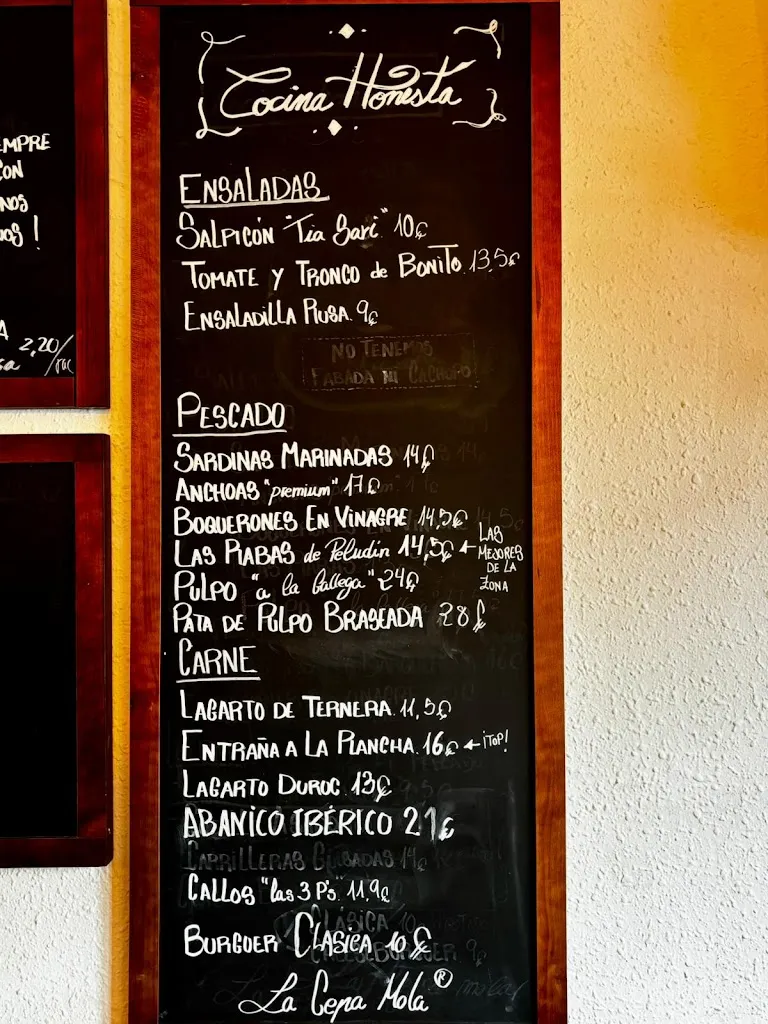 EMPRE
CON
NOS
OS!
A 2,20/
Cocina Honesta
ENSALADAS
SALPICÓN "Tía Sari" 10€
TOMATE Y TRONCO de BONITO 13,5€
ENSALADILLA RUSA. 9€
NO TENEMOS
FABADA NI CACHOPO!
PESCADO
SARDINAS MARINADAS 14€
ANCHOAS "premium" 17€
BOQUERONES EN VINAGRE 14,5€
LAS RABAS de Peludín 14,5€ ← LAS MEJORES DE LA ZONA
PULPO "a la Gallega" 24€
PATA DE PULPO BRASEADA 28€
CARNE
LAGARTO DE TERNERA. 11,5€
ENTRAÑA A LA PLANCHA. 16€ ← ¡TOP!
LAGARTO DUROC. 13€
ABANICO IBÉRICO 21€
CARRILLERAS GUISADAS 14€
CALLOS "las 3 P's". 11,9€
BURGUER CLÁSICA 10€
La Cepa Mola ®